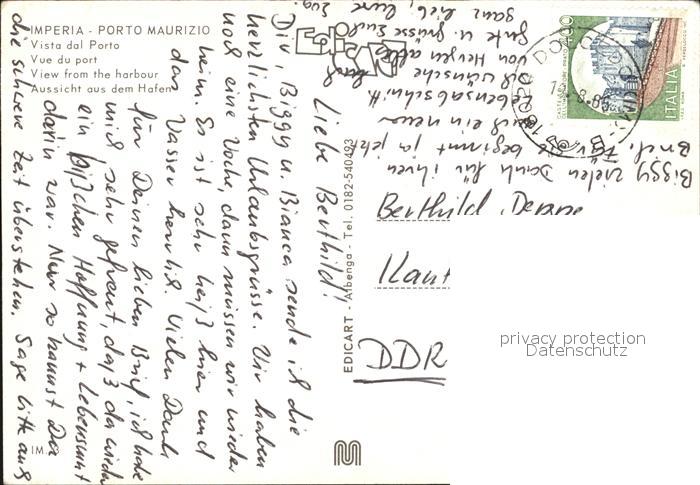 IMPERIA - PORTO MAURIZIO
Vista dal Porto
Vue du port
View from the harbour
Aussicht aus dem Hafen
IM.
EDICART - Albenga - Tel. 0182-540493
Liebe Berthild!
Dir, Biggy u. Bianca sende ich die
herzlichsten Urlaubsgrüsse. Wir haben
noch eine Woche, dann müssen wir wieder
heim. Es ist sehr heiß hier und
das Wasser herrlich. Vielen Dank
für Deinen lieben Brief, ich habe
mich sehr gefreut, daß da wieder
ein bißchen Hoffnung + Lebensmut
darin war. Nur so kannst Du
die schwere Zeit überstehen. Sage bitte auch
Biggy vielen Dank für ihren
Brief. Für sie beginnt ja jetzt
auch ein neuer
Lebensabschnitt
Ich wünsche
von Herzen alles
Gute u. grüsse Euch
ganz lieb, Eure
Berthild
DDR
200
ITALIA
privacy protection
Datenschutz